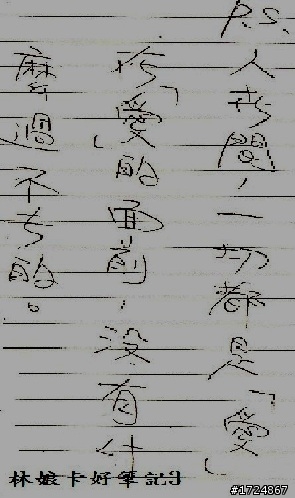 P.S.
人世間，一切都是「愛」
在「愛」的面前，沒有什
麼過不去的。
林娘卡好筆記3
#1724867